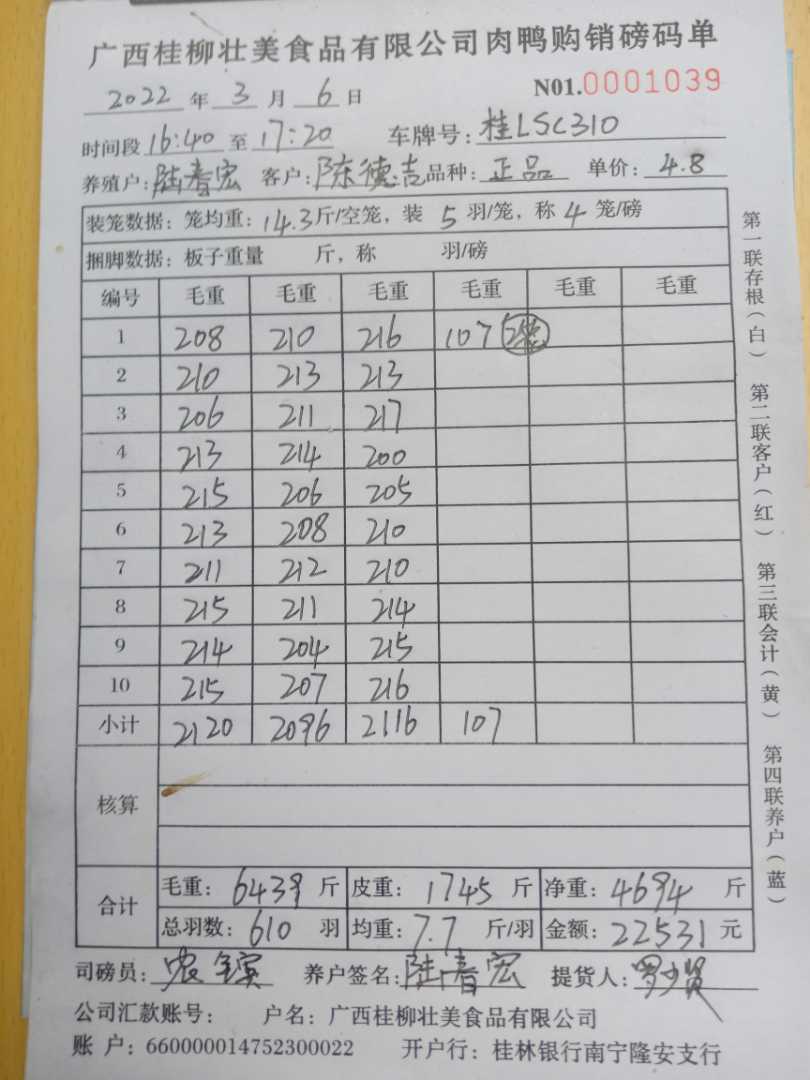 广西桂柳壮美食品有限公司肉鸭购销磅码单
2022 年 3 月 6 日 N01.0001039
时间段 16:40 至 17:20 车牌号: 桂LSC310
养殖户: 陆春宏 客户: 陈德吉 品种: 正品 单价: 4.8
装笼数据: 笼均重: 14.3 斤/空笼, 装 5 羽/笼, 称 4 笼/磅
捆脚数据: 板子重量 斤, 称 羽/磅
编号 毛重 毛重 毛重 毛重 毛重 毛重
1 208 210 216 107 2笼
2 210 213 213
3 206 211 217
4 213 214 200
5 215 206 205
6 213 208 210
7 211 212 210
8 215 211 214
9 214 204 215
10 215 207 216
小计 2120 2096 2116 107
核算
合计
毛重: 6439 斤 皮重: 1745 斤 净重: 4694 斤
总羽数: 610 羽 均重: 7.7 斤/羽 金额: 22531 元
司磅员: 农 养户签名: 陆春宏 提货人: 罗少贤
公司汇款账号: 户名: 广西桂柳壮美食品有限公司
账 户: 660000014752300022 开户行: 桂林银行南宁隆安支行
第一联存根(白) 第二联客户(红) 第三联会计(黄) 第四联养户(蓝)